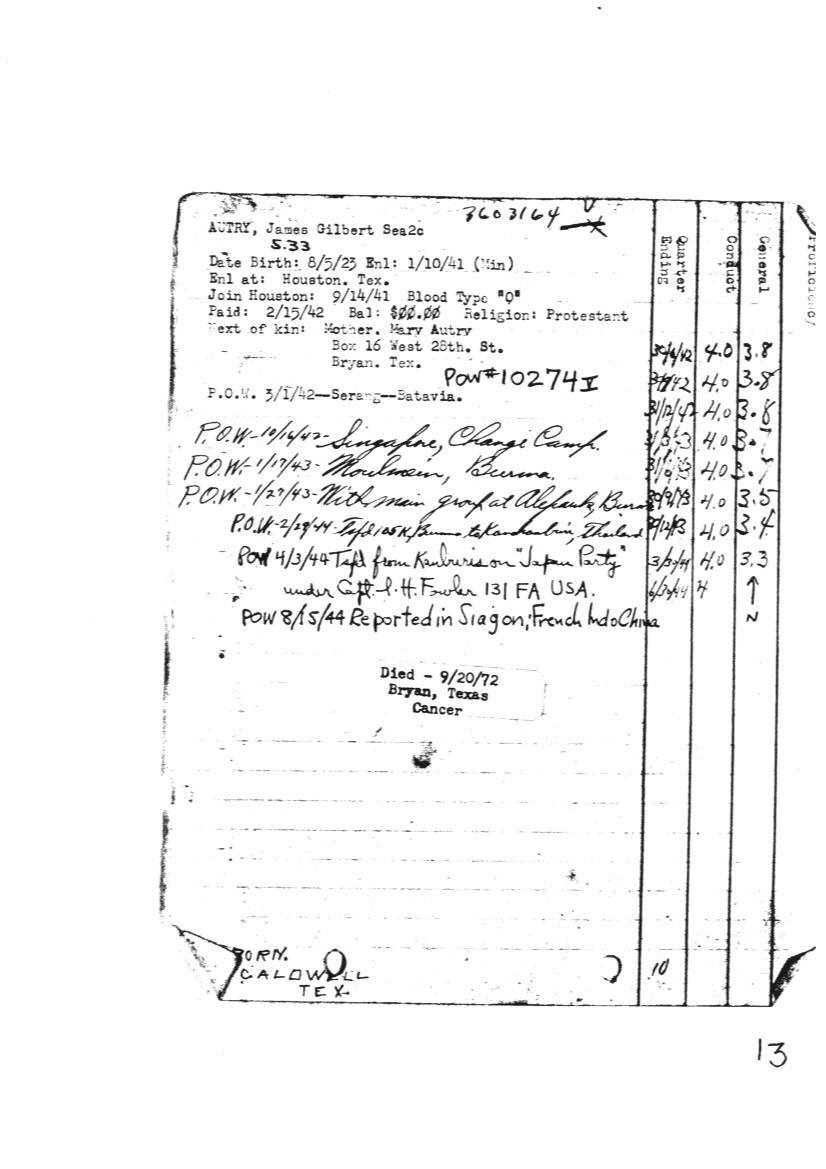 3603164
AUTRY, James Gilbert Sea2c
5.33
Date Birth: 8/5/23 Enl: 1/10/41 (Min)
Enl at: Houston. Tex.
Join Houston: 9/14/41 Blood Type "O"
Paid: 2/15/42 Bal: $00.00 Religion: Protestant
Next of kin: Mother. Mary Autry
Box 16 West 28th. St.
Bryan. Tex.
POW#10274 V
P.O.W. 3/1/42--Serang--Batavia.
P.O.W-10/16/42-Singapore, Change Camp.
P.O.W-1/17/43-Moulmein, Burma.
P.O.W.-1/27/43-With main group at Alepauk, Burma
P.O.W-2/29/44-Tsfd 105K, Burma to Kanchanburi, Thailand
POW 4/3/44 Tsfd from Kanburis on "Japan Party"
under Capt. I. H. Fowler 131 FA USA.
POW 8/15/44 Reported in Siagon, French Indo China
Died - 9/20/72
Bryan, Texas
Cancer
BORN.
CALDWELL
TEX.
Quarter Ending
Conduct
General
4.0 3.8
4.0 3.8
31/12/42 4.0 3.8
4.0 3.7
4.0 3.7
4.0 3.5
4.0 3.4
4.0 3.3
4
N
10
13